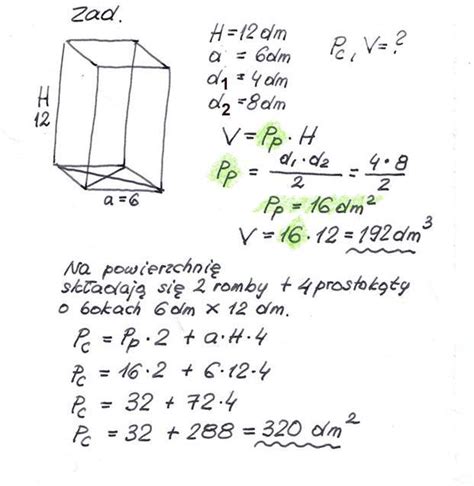 Zad.
H = 12 dm
a = 6dm
d1 = 4 dm
d2 = 8dm
Pc, V = ?
H
12
a = 6
V = Pp · H
Pp = d1 · d2 / 2 = 4 · 8 / 2
Pp = 16 dm²
V = 16 · 12 = 192 dm³
Na powierzchnię
składają się 2 romby + 4 prostokąty
o bokach 6 dm × 12 dm.
Pc = Pp · 2 + a · H · 4
Pc = 16 · 2 + 6 · 12 · 4
Pc = 32 + 72 · 4
Pc = 32 + 288 = 320 dm²